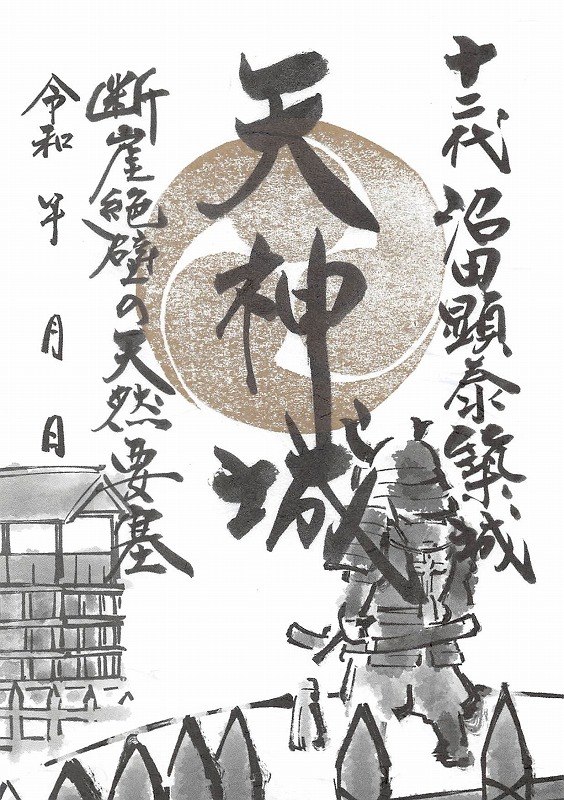 十二代 沼田顕泰築城
天神城
断崖絶壁の天然要塞
令和 年 月 日